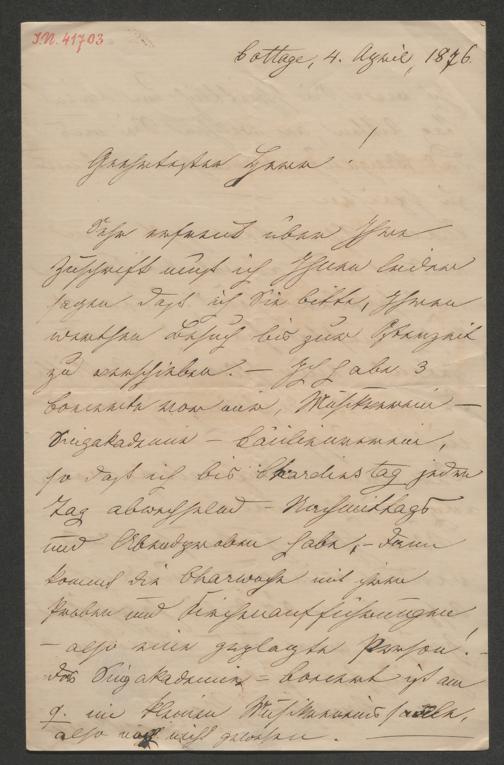 I.N. 41703
Cottage, 4. April, 1876.
Geehrtester Herr!
Sehr erfreut über Ihre
Zuschrift muß ich Ihnen leider
sagen daß ich Sie bitte, Ihren
werthen Besuch bis zur Osterzeit
zu verschieben. – Ich habe 3
Concerte vor mir, Musikverein –
Singakademie – Cäcilienverein,
so daß ich bis Chardinstag jeden
Tag abwechselnd – Nachmittags
und Abendproben habe, – dann
kommt die Charwoche mit ihren
Proben und Kirchenaufführungen
– also eine geplagte Person! –
Das Singakademie = Concert ist am
9. im kleinen Musikvereinssaale,
also noch nicht gewesen.